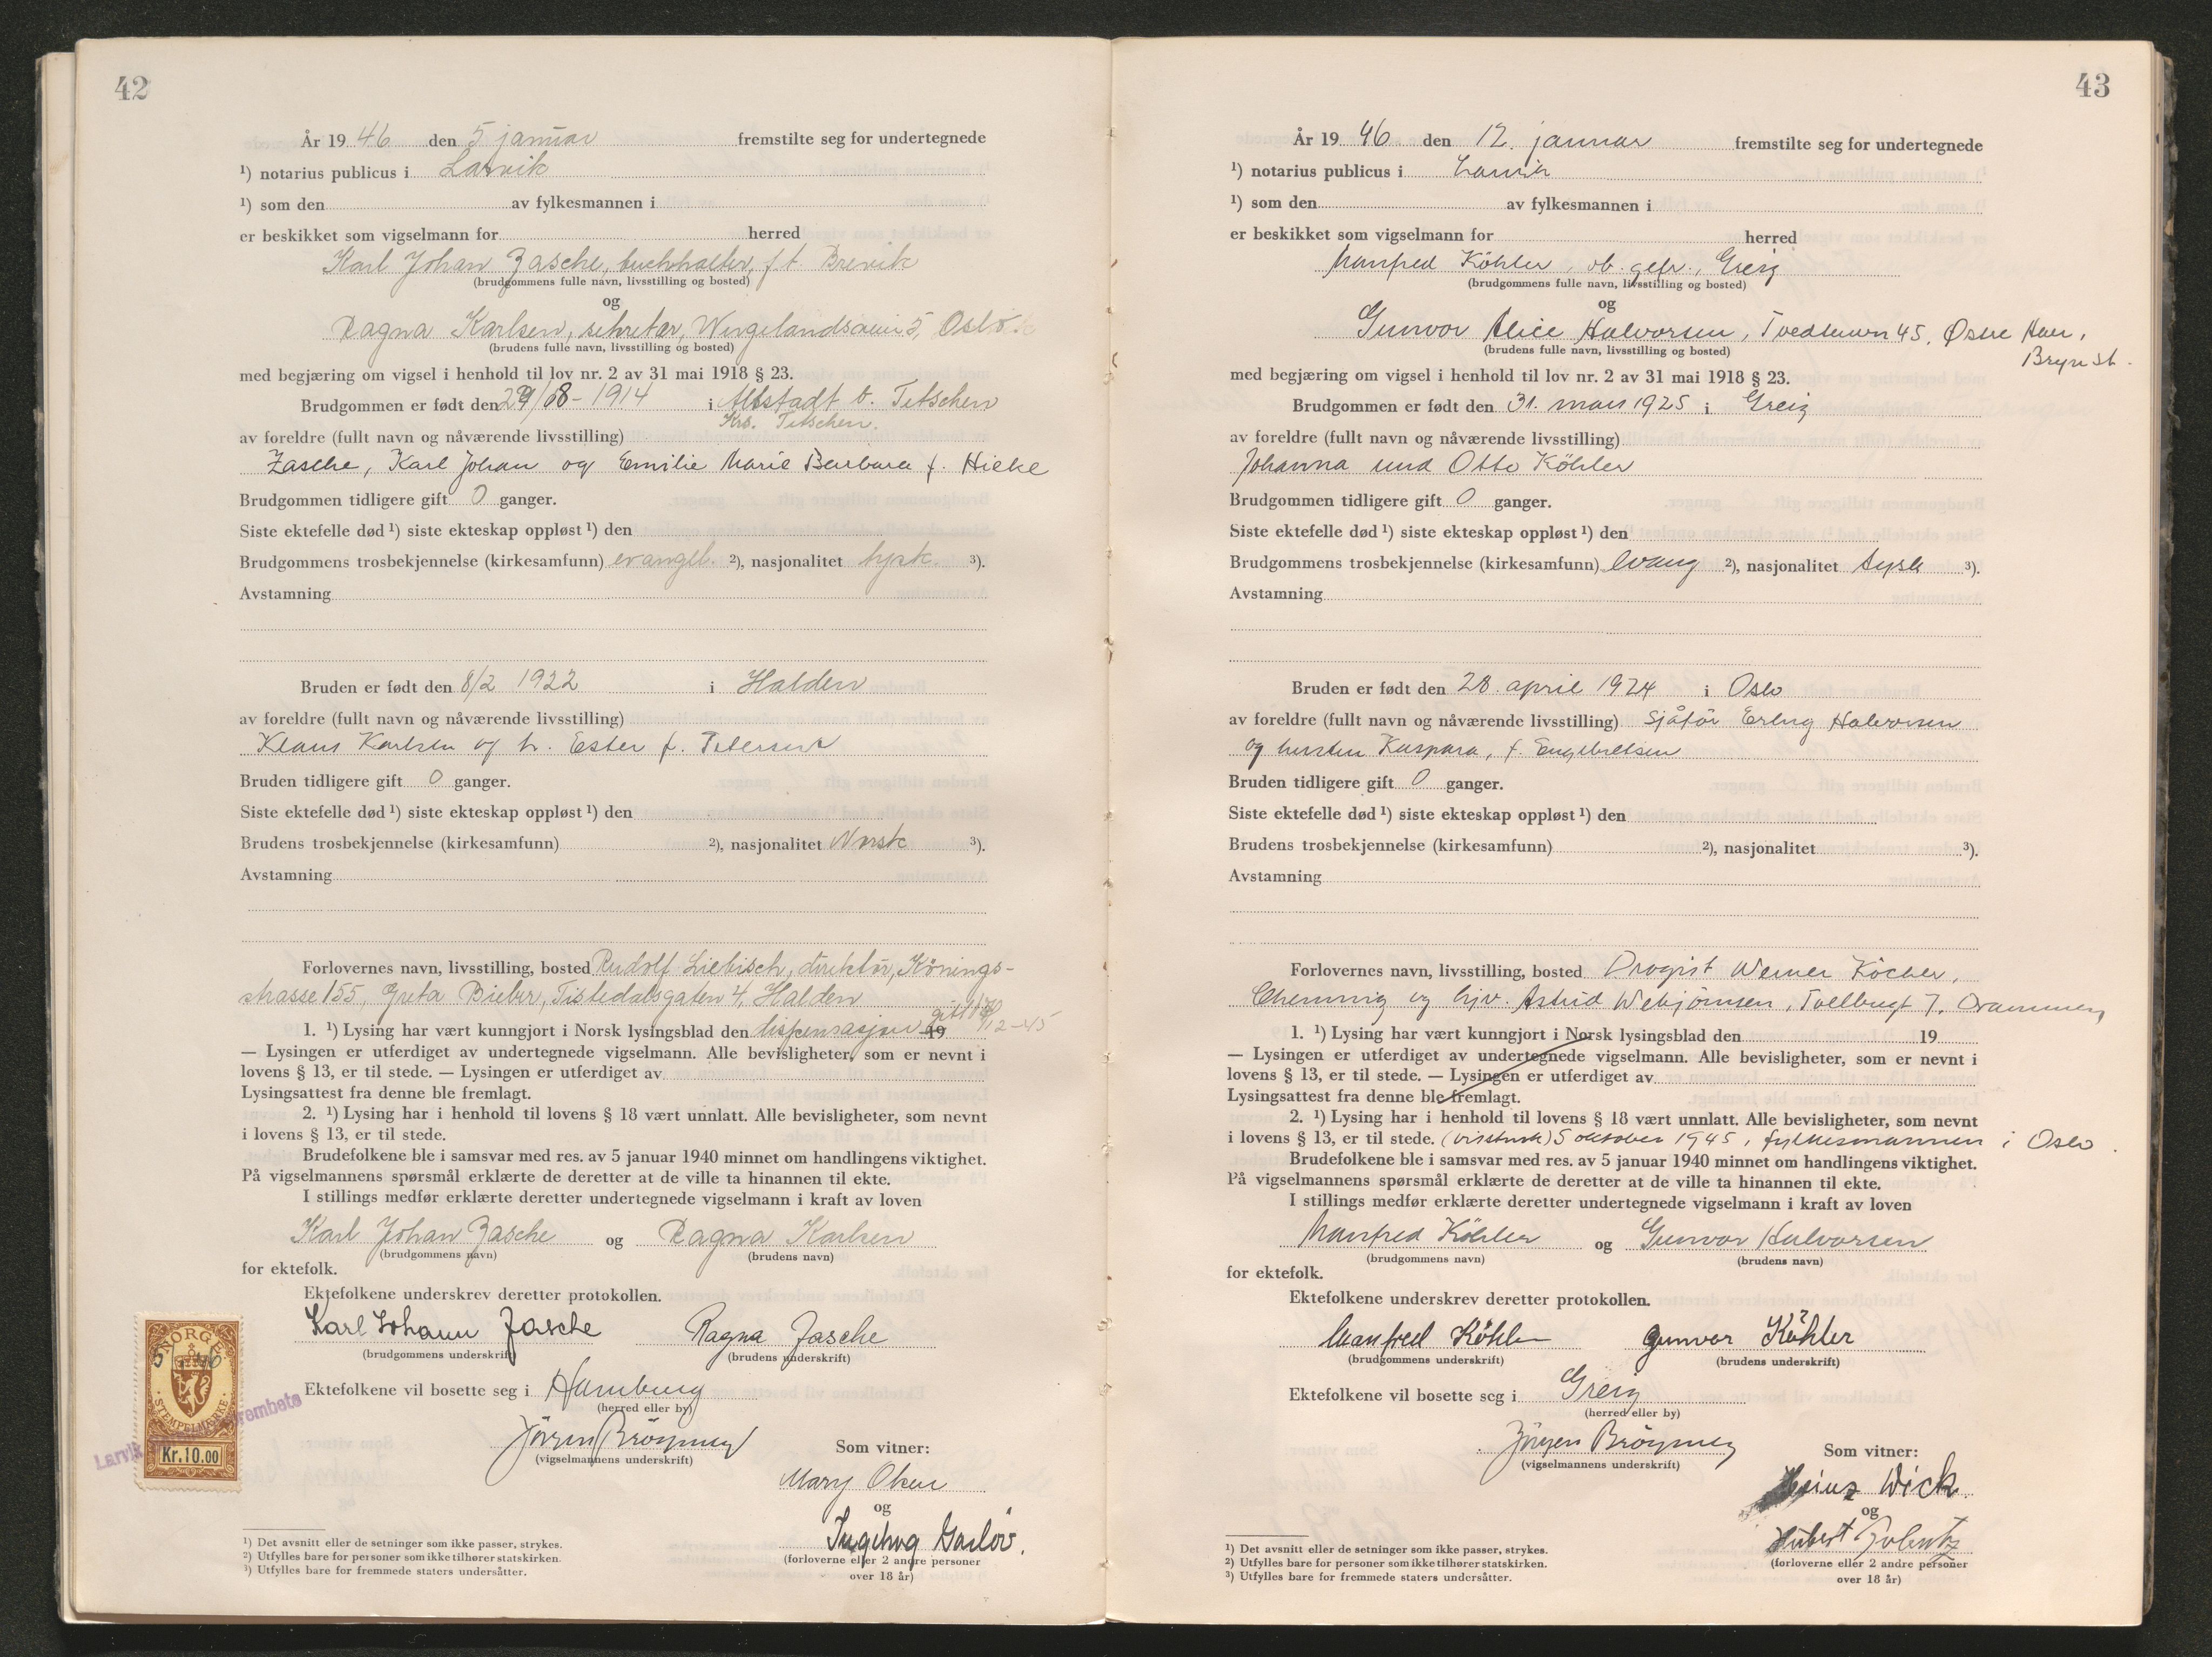 42
År 19 46 den 5 januar fremstilte seg for undertegnede
¹) notarius publicus i Larvik
¹) som den av fylkesmannen i
er beskikket som vigselmann for herred
Karl Johan Zasche, buchhalter, f.t. Brevik
(brudgommens fulle navn, livsstilling og bosted)
og
Ragna Karlsen, sekretær, Wergelandsveien 5, Oslo
(brudens fulle navn, livsstilling og bosted)
med begjæring om vigsel i henhold til lov nr. 2 av 31 mai 1918 § 23.
Brudgommen er født den 29/8-1914 i Altstadt b. Tetschen
Krs. Tetschen.
av foreldre (fullt navn og nåværende livsstilling)
Zasche, Karl Johan og Emilie Marie Barbara f. Hieke
Brudgommen tidligere gift 0 ganger.
Siste ektefelle død ¹) siste ekteskap oppløst ¹) den
Brudgommens trosbekjennelse (kirkesamfunn) evangel. ²), nasjonalitet tysk ³).
Avstamning
Bruden er født den 8/2 1922 i Halden
av foreldre (fullt navn og nåværende livsstilling)
Klaus Karlsen og h. Ester f. Petersen
Bruden tidligere gift 0 ganger.
Siste ektefelle død ¹) siste ekteskap oppløst ¹) den
Brudens trosbekjennelse (kirkesamfunn) ²), nasjonalitet Norsk ³).
Avstamning
Forlovernes navn, livsstilling, bosted Rudolf Liebisch, direktør, Königs-
strasse 155, Greta Bieber, Tistedalsgaten 4, Halden
1. ¹) Lysing har vært kunngjort i Norsk lysingsblad den dispensasjon gitt 19 /12-45
— Lysingen er utferdiget av undertegnede vigselmann. Alle bevisligheter, som er nevnt i
lovens § 13, er til stede. — Lysingen er utferdiget av
Lysingsattest fra denne ble fremlagt.
2. ¹) Lysing har i henhold til lovens § 18 vært unnlatt. Alle bevisligheter, som nevnt
i lovens § 13, er til stede.
Brudefolkene ble i samsvar med res. av 5 januar 1940 minnet om handlingens viktighet.
På vigselmannens spørsmål erklærte de deretter at de ville ta hinannen til ekte.
I stillings medfør erklærte deretter undertegnede vigselmann i kraft av loven
Karl Johan Zasche og Ragna Karlsen
(brudgommens navn) (brudens navn)
for ektefolk.
Ektefolkene underskrev deretter protokollen.
Karl Johann Zasche Ragna Zasche
(brudgommens underskrift) (brudens underskrift)
NORGE
5 1 46
STEMPELMERKE
Kr.10.00
Larvik
Ektefolkene vil bosette seg i Hamburg
(herred eller by)
Jörgen Brögmer
(vigselmannens underskrift)
Som vitner:
Mary Olsen
og
Ingeborg
(forloverne eller 2 andre personer
over 18 år)
¹) Det avsnitt eller de setninger som ikke passer, strykes.
²) Utfylles bare for personer som ikke tilhører statskirken.
³) Utfylles bare for fremmede staters undersåtter.
43
År 19 46 den 12. januar fremstilte seg for undertegnede
¹) notarius publicus i Larvik
¹) som den av fylkesmannen i
er beskikket som vigselmann for herred
Manfred Köhler, ob. gefr., Greiz
(brudgommens fulle navn, livsstilling og bosted)
og
Gunvor Alice Halvorsen, Tvedtenvn 45, Østre Aker,
Bryn St.
(brudens fulle navn, livsstilling og bosted)
med begjæring om vigsel i henhold til lov nr. 2 av 31 mai 1918 § 23.
Brudgommen er født den 31. mars 1925 i Greiz
av foreldre (fullt navn og nåværende livsstilling)
Johanna und Otto Köhler
Brudgommen tidligere gift 0 ganger.
Siste ektefelle død ¹) siste ekteskap oppløst ¹) den
Brudgommens trosbekjennelse (kirkesamfunn) evang ²), nasjonalitet tysk ³).
Avstamning
Bruden er født den 28. april 1924 i Oslo
av foreldre (fullt navn og nåværende livsstilling) sjåfør Erling Halvorsen
og hustru Kaspara, f. Engebretsen
Bruden tidligere gift 0 ganger.
Siste ektefelle død ¹) siste ekteskap oppløst ¹) den
Brudens trosbekjennelse (kirkesamfunn) ²), nasjonalitet ³).
Avstamning
Forlovernes navn, livsstilling, bosted Drogist Werner Köcher,
Chemnig og hjv. Astrid Webjörnsen, Tollbugt 7, Drammen
1. ¹) Lysing har vært kunngjort i Norsk lysingsblad den 19
— Lysingen er utferdiget av undertegnede vigselmann. Alle bevisligheter, som er nevnt i
lovens § 13, er til stede. — Lysingen er utferdiget av
Lysingsattest fra denne ble fremlagt.
2. ¹) Lysing har i henhold til lovens § 18 vært unnlatt. Alle bevisligheter, som nevnt
i lovens § 13, er til stede. 5 oktober 1945, fylkesmannen i Oslo.
Brudefolkene ble i samsvar med res. av 5 januar 1940 minnet om handlingens viktighet.
På vigselmannens spørsmål erklærte de deretter at de ville ta hinannen til ekte.
I stillings medfør erklærte deretter undertegnede vigselmann i kraft av loven
Manfred Köhler og Gunvor Halvorsen
(brudgommens navn) (brudens navn)
for ektefolk.
Ektefolkene underskrev deretter protokollen.
Manfred Köhler Gunvor Köhler
(brudgommens underskrift) (brudens underskrift)
Ektefolkene vil bosette seg i Greiz
(herred eller by)
Jörgen Brögmer
(vigselmannens underskrift)
Som vitner:
Heinz Wick
og
Hubert
(forloverne eller 2 andre personer
over 18 år)
¹) Det avsnitt eller de setninger som ikke passer, strykes.
²) Utfylles bare for personer som ikke tilhører statskirken.
³) Utfylles bare for fremmede staters undersåtter.